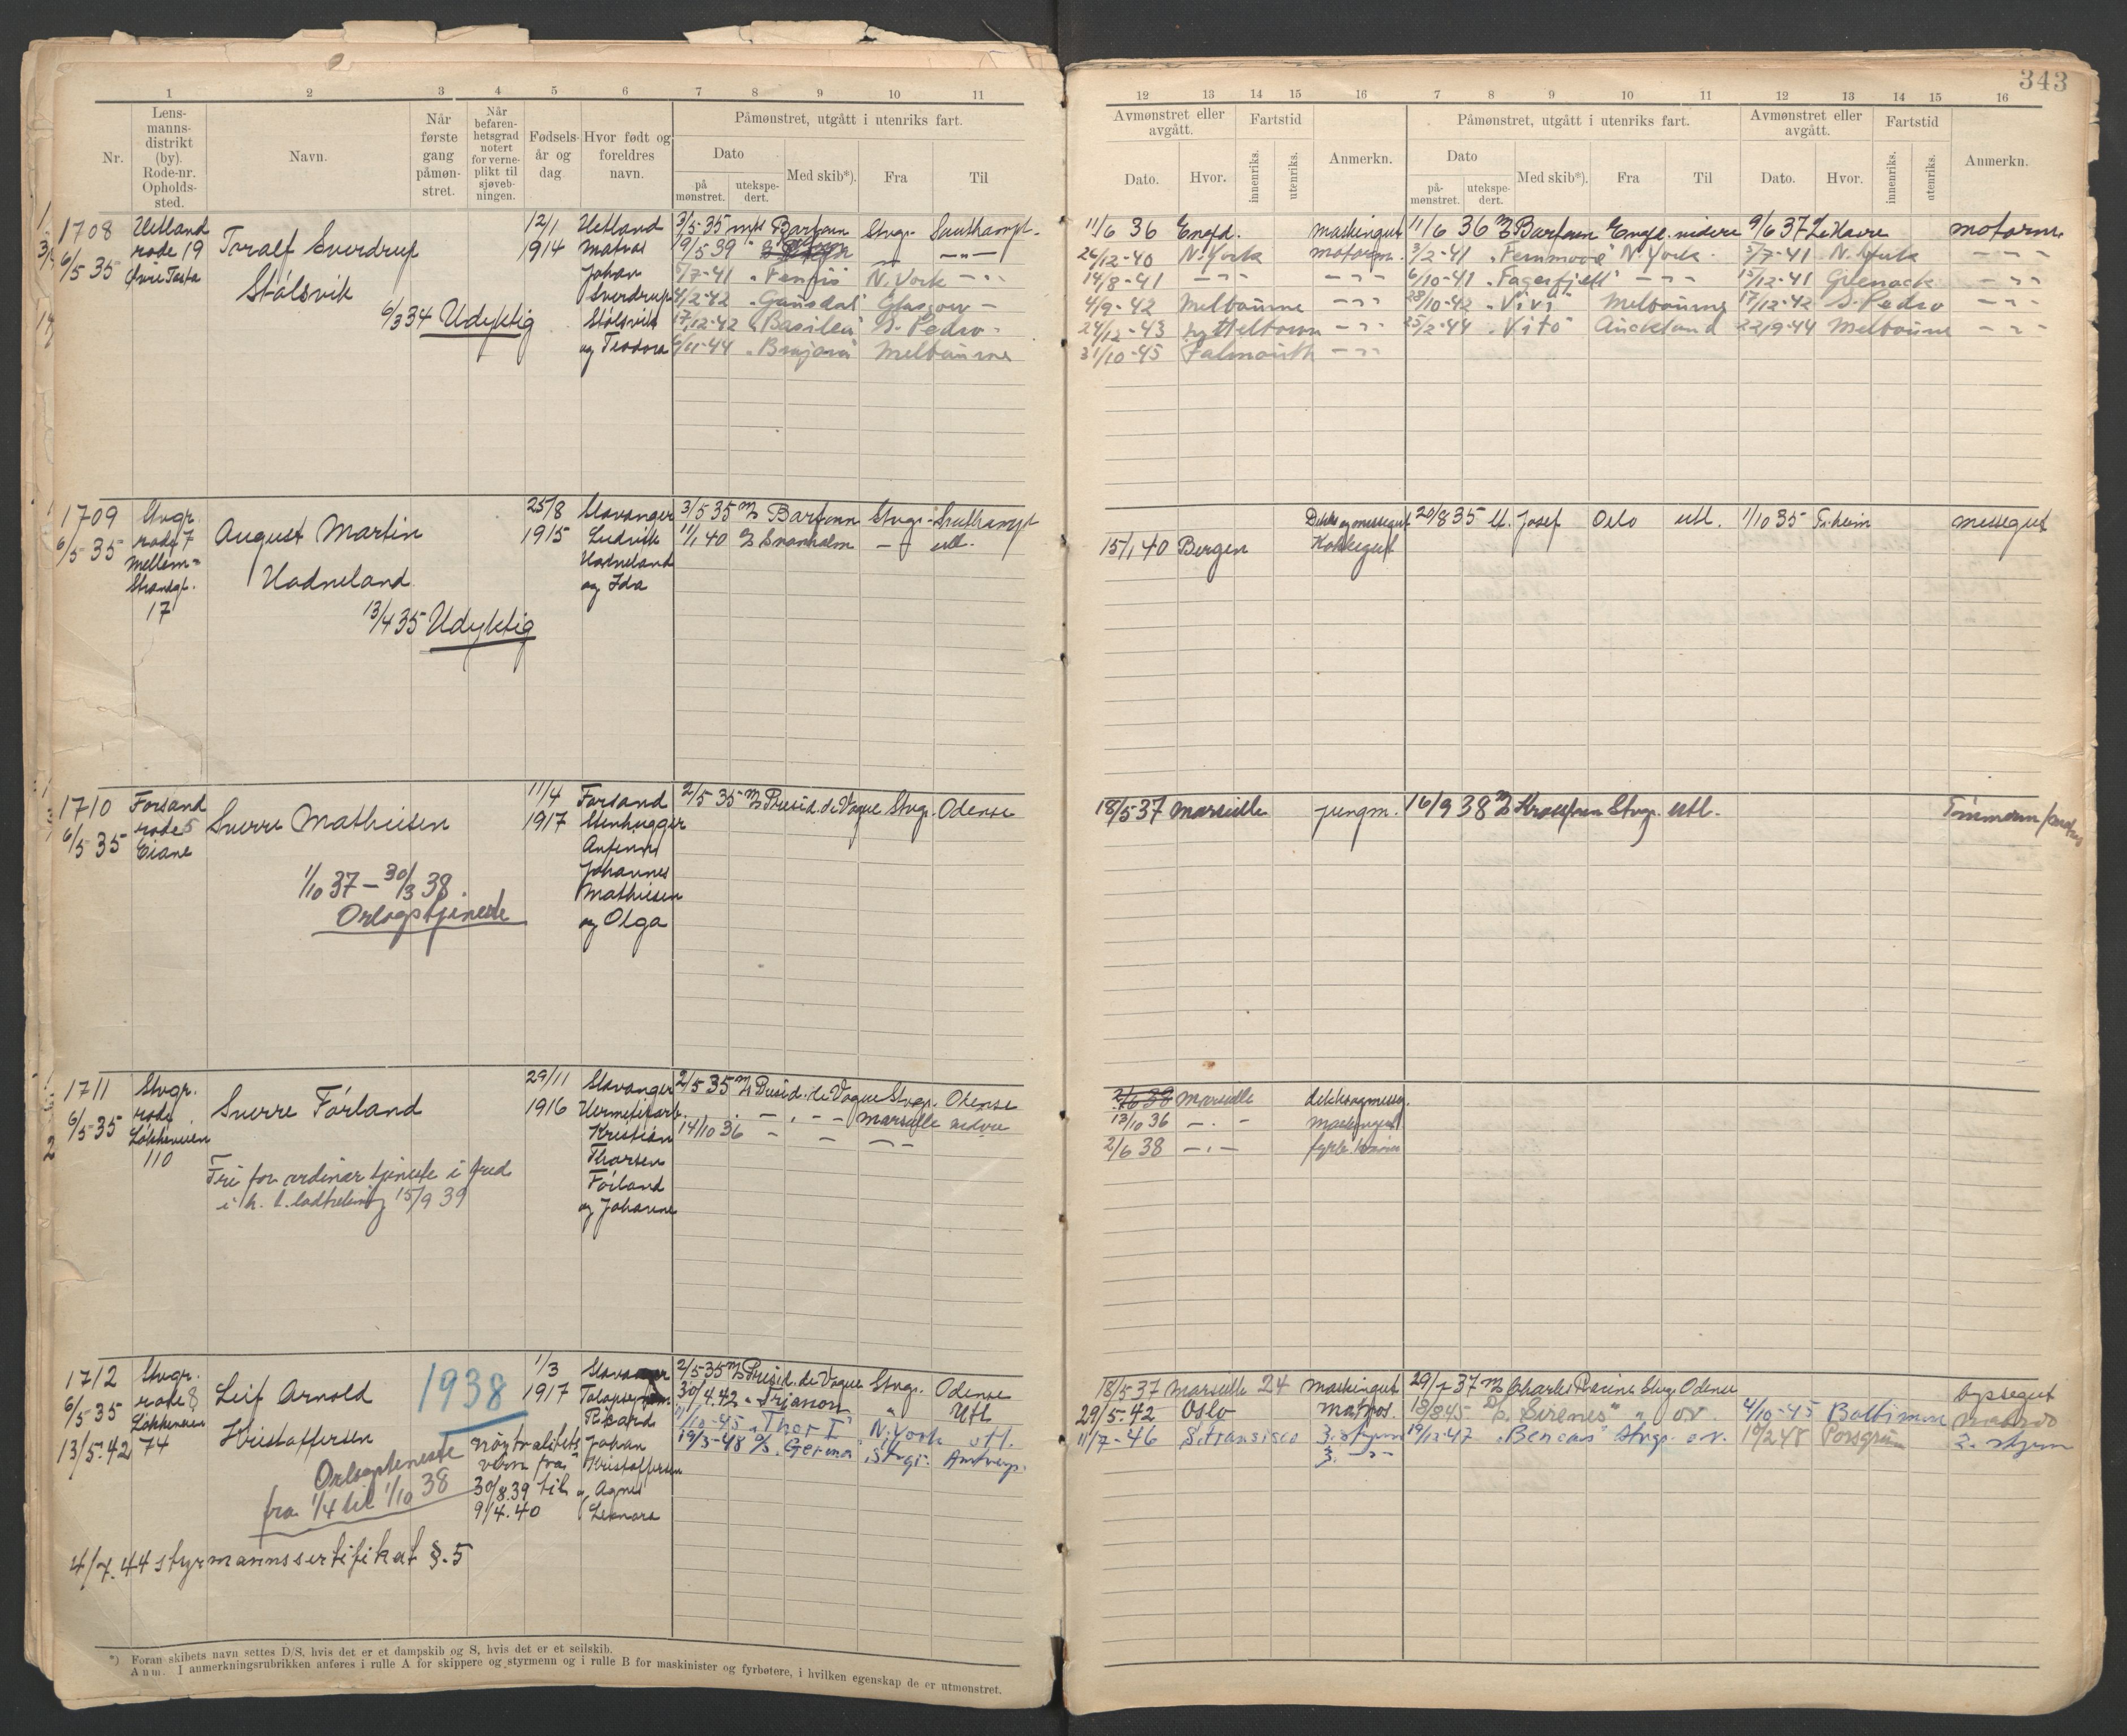 343
1 2 3 4 5 6 7 8 9 10 11
Nr.
Lens-
manns-
distrikt
(by).
Rode-nr.
Opholds-
sted.
Navn.
Når
første
gang
påmøn-
stret.
Når
befaren-
hetsgrad
notert
for verne-
plikt til
sjøveb-
ningen.
Fødsels-
år og
dag
Hvor født og
foreldres
navn.
Påmønstret, utgått i utenriks fart.
Dato
på
mønstret.
utekspe-
dert.
Med skib*).
Fra
Til
12 13 14 15 16 7 8 9 10 11 12 13 14 15 16
Avmønstret eller
avgått.
Dato.
Hvor.
Fartstid
innenriks.
utenriks.
Anmerkn.
Påmønstret, utgått i utenriks fart.
Dato
på-
mønstret.
utekspe-
dert.
Med skib*).
Fra
Til
Avmønstret eller
avgått.
Dato.
Hvor.
Fartstid
innenriks.
utenriks.
Anmerkn.
1708
6/5 35
Hetland
rode 19
Øvre Tasta
Toralf Sverdrup
Stålsvik
6/3 34 Udyktig
12/1
1914
Hetland
matros
Johan
Sverdrup
Stålsvik
og Teodora
3/5 35 Barfonn Stvgr. Southampt.
19/5 39
5/7-41 N. York
4/2-42 "Gausdal" Glasgow
17/12-42 "Basilea" S. Pedro
6/11-44 Melbourne
11/6 36 Engld. maskingut 11/6 36 Barfonn Engl. videre 9/6 37 Le Havre motorm.
26/12-40 N. York motorm. 3/2-41 "Fernmoor" N. York 5/7-41 N. York
14/8-41 6/10-41 "Fagerfjell" 15/12-41 Greenock
4/9-42 Melbourne 28/10-42 "Vivi" Melbourne 17/12-42 S. Pedro
24/12-43 25/2-44 "Vito" Auckland 22/9-44 Melbourne
31/10-45 Falmouth
1709
6/5 35
Stvgr.
rode 7
Mellem-
Strandgt.
17
August Martin
Hadneland
13/4 35 Udyktig
25/8
1915
Stavanger
Ludvik
Hadneland
og Ida
3/5 35 Barfonn Stvgr. Southampt
11/1 40 Svanholm utl.
Dekks og messegut 20/8 35 Josef Oslo utl. 1/10 35 Tr.heim messegut
15/1 40 Bergen Kokkegut
1710
6/5 35
Forsand
rode 5
Eiane
Sverre Mathiesen
1/10 37 – 30/3 38.
Orlogstjeneste
11/4
1917
Forsand
Stenhugger
Johannes
Mathiesen
og Olga
2/5 35 Presid. de Vogue Stvgr. Odense
18/5 37 Marseille jungm. 16/9 38 Stvgr. utl. Tømmerm
1711
6/5 35
Stvgr.
rode
Løkkeveien
110
Sverre Førland
Fri for ordinær tjeneste i fred
15/9 39
29/11
1916
Stavanger
Hermetikarb.
Kristian
Thorsen
Førland
og Johanne
2/5 35 Presid. de Vogue Stvgr. Odense
Marseille videre
14/10 36
2/6 38 Marseille dekksogmesseg.
13/10 36 maskingut
2/6 38
1712
6/5 35
13/5. 42
Stvgr.
rode 8
Løkkeveien
74
Leif Arnold
Kristoffersen
1938
Orlogstjeneste
fra 1/4 til 1/10 38
nøytralitets
vern fra
30/8.39 til
9/4. 40
4/7. 44 styrmannssertifikat §. 5
1/3
1917
Stavanger
Rikard
Johan
Kristoffersen
og Agnes
Leonora
2/5 35 Presid. de Vogue Stvgr. Odense
30/4.42 "Trianon" " Utl
11/10-45 "Thor I" N. York utl.
19/3-48 "Germa" Stvgr. Antwerp.
18/5 37 Marseille 24 Maskingut 29/7 37 Charles Racine Stvgr. Odense byssegut
29/5-42 Oslo Matros. 18/8 45 "Sirenes" " ov. 4/10-45 Baltimore Matros
11/7-46 S. Fransisco 3. styrm 19/12-47 "Bencas" Stvgr. o.v. 10/2 48 Porsgrunn 2. styrm
*) Foran skibets navn settes D/S, hvis det er et dampskib og S, hvis det er et seilskib.
Anm. I anmerkningsrubrikken anføres i rulle A for skippere og styrmenn og i rulle B for maskinister og fyrbøtere, i hvilken egenskap de er utmønstret.